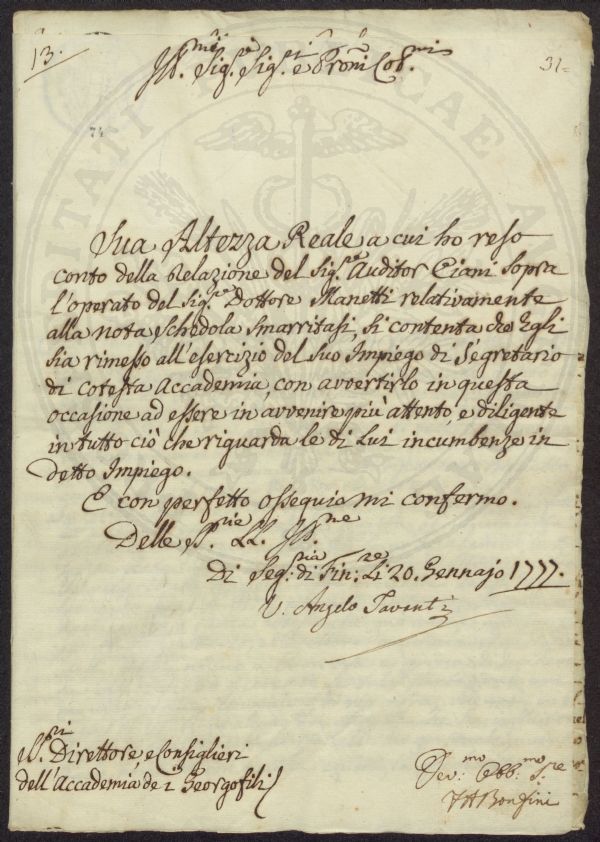 13.
31=
Ill.mi Sig.re Sig.ri e Pron̄i Col.mi
74
Sua Altezza Reale a cui ho reso
conto della Relazione del Sig.re Auditor Ciani sopra
l'operato del Sig.re Dottore Manetti relativamente
alla nota Schedola smarritasi, si contenta che Egli
sia rimesso all'esercizio del suo Impiego di Segretario
di cotesta Accademia, con avvertirlo in questa
occasione ad essere in avvenire più attento, e diligente
in tutto ciò che riguarda le di Lui incumbenze in
detto Impiego.
E con perfetto ossequio mi confermo.
Delle SS.rie LL. Ill.me
Di Seg:ria di Fin:ze Li 20. Gennajo 1777.
V. Angelo Tavanti
SS.ri Direttore, e Consiglieri
dell'Accademia de i Georgofili
Dev:mo Obb:mo S.re
Bonfini